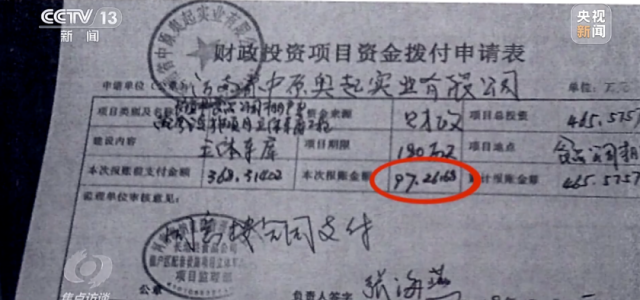 CCTV 13
新闻
央视新闻
财政投资项目资金拨付申请表
申请单位（公章） 河南省中原奥起实业有限公司 单位：万元
项目类别及名称 资金来源 财政 项目总投资 465.5757
建设内容 立体车库 项目期限 180 项目地点
本次报账前支付金额 368.31402 本次报账金额 97.2668 累计报账金额 465.5757
监理单位审核意见：
同意按合同支付
项目监理部
公章 负责人签字 张海燕
焦点访谈